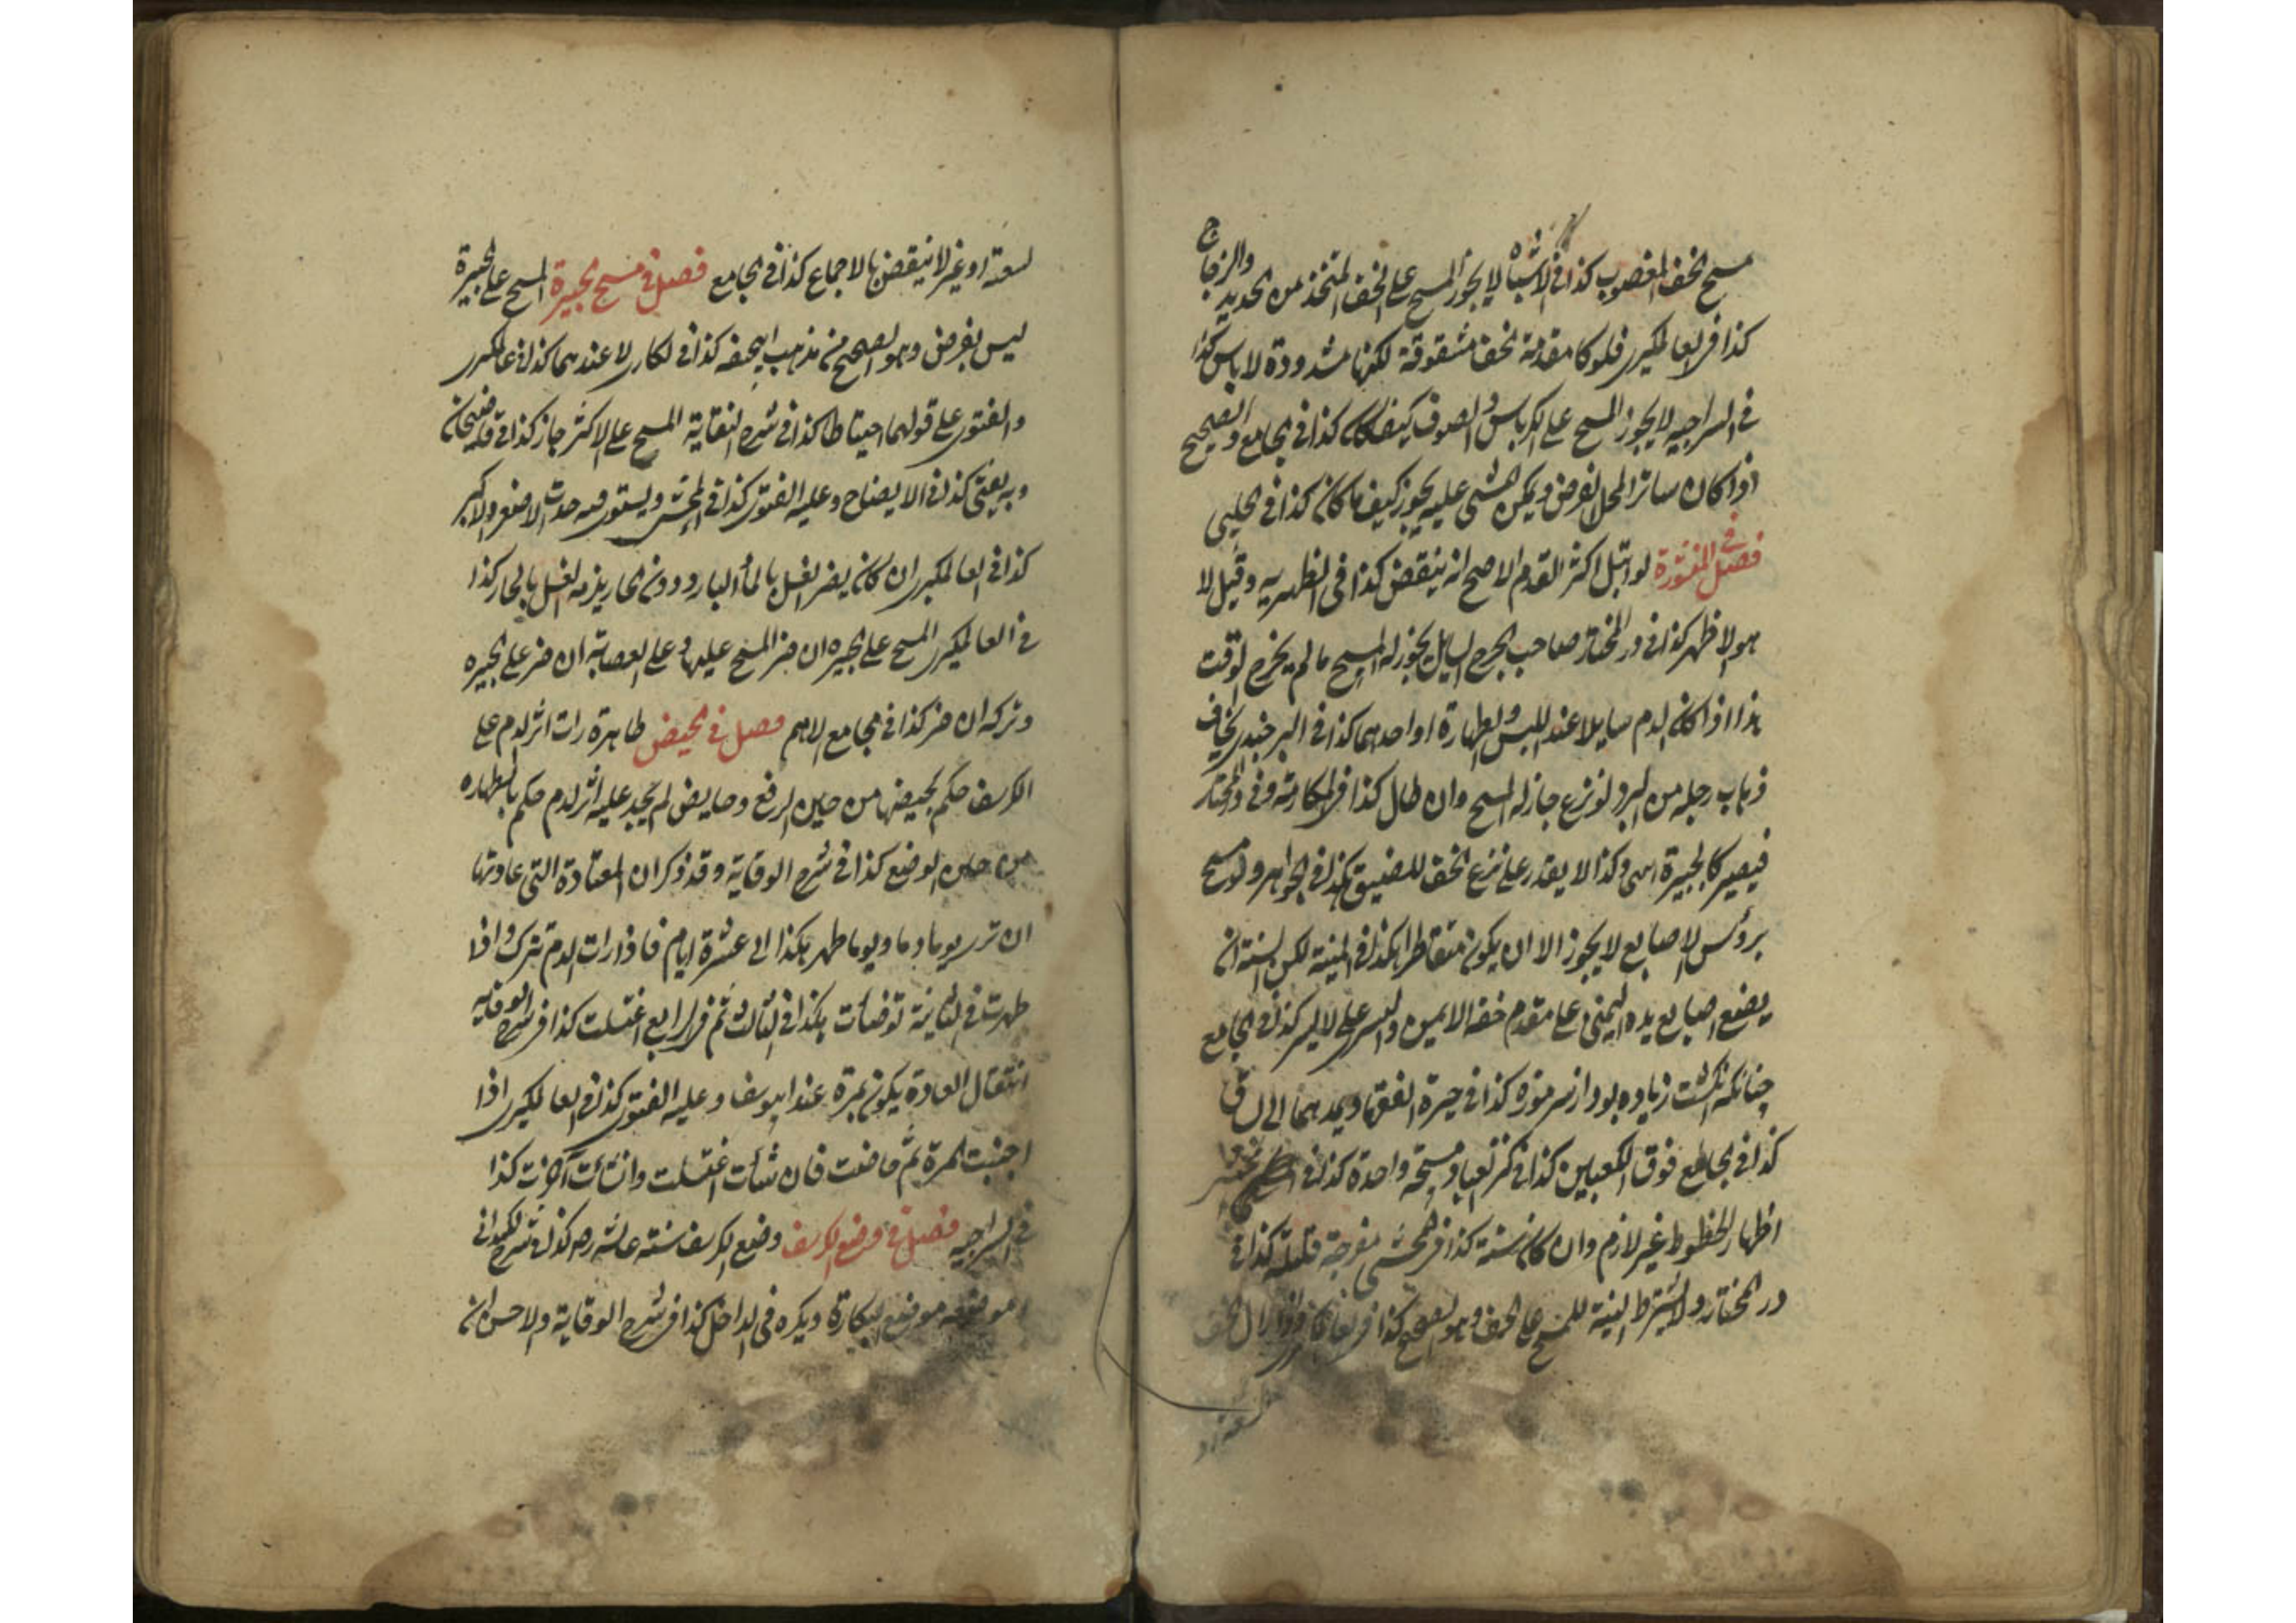 مسح الخف المغصوب كذا في الاشباه لا يجوز المسح على الخف المتخذ من الحديد والزجاج
كذا في العالمكيرى فلو كا مقدمة الخف مشقوقة لكنها مشدودة لا باس كذا
في السراجيه لا يجوز المسح على الكرباس والصوف كيف كان كذا في الجامع والصحيح
اذا كان ساترا لمحل الفرض ويمكن المشى عليه يجوز كيف ما كان كذا في الحلبي
فصل في المنثورة لو ابتل اكثر القدم الاصح انه ينتقض كذا فى الظهيريه وقيل لا
هو الاظهر كذا في در المختار صاحب الجرح السايل يجوز له المسح ما لم يخرج الوقت
هذا اذا كان الدم سايلا عند اللبس والطهارة او احدهما كذا في البرجندي يخاف
ذهاب رجله من البرد لو نزع جاز له المسح وان طال كذا في المكارمة وفي در المختار
فيصير كالجبيرة انتهى وكذا لا يقدر على نزع الخف للضيق هكذا في الجواهر ولو مسح
برؤس الاصابع لا يجوز الا ان يكون متقاطرا هكذا في المنية لكن السنة ان
يضع اصابع يده اليمنى على مقدم خفه الايمن واليسرى على الايسر كذا في الجامع
چنانكه انكشت زياده بود از سر موزه كذا في حيرة الفقها ويمدهما الى الساق
كذا في الجامع فوق الكعبين كذا في كنز العباد ومسحة واحدة كذا في
اظهار الخطوط غير لازم وان كان سنة كذا في المحشى مفرجة قليلة كذا في
در المختار ولا يشترط النية للمسح على الخف وهو الصحيح كذا في
لسعته او غير لا ينتقض بالاجماع كذا في الجامع فصل في مسح الجبيرة المسح على الجبيرة
ليس بفرض وهو الصحيح من مذهب ابيحنفه كذا في لا عندهما كذا في عالمكيرى
والفتوى على قولهما احتياطا كذا في شرح النقاية المسح على الاكثر جاز كذا في قاضيخان
وبه يفتى كذا في الايضاح وعليه الفتوى كذا في المحشى ويستوى فيه حدث الاصغر والاكبر
كذا في العالمكيرى ان كان يضر الغسل بالمأ البارد دون الحار يلزمه الغسل بالحار كذا
في العالمكيرى المسح على الجبيره ان ضر المسح عليها وعلى العصابة ان ضر على الجبيره
وتركه ان ضر كذا في الجامع الاهم فصل في الحيض طاهرة رات اثر الدم على
الكرسف حكم بحيضها من حين الرفع وحايض لم يجد عليه اثر الدم حكم بالطهاره
من حين الوضع كذا في شرح الوقاية وقد ذكر ان المعتادة التى عادتها
ان ترى يوما دما ويوما طهر هكذا الى عشرة ايام فاذا رات الدم تترك واذا
طهرت في الثانية توضأت هكذا في الثالث ثم في الرابع اغتسلت كذا في شرح الوقايه
انتقال العادة يكون بمرة عند ابيوسف وعليه الفتوى كذا في العالمكيرى اذا
اجنبت المرة ثم حاضت فان شأت اغتسلت وان شأت آخرت كذا
في السراجيه فصل في وضع الكرسف وضع الكرسف سنة كذا في شرح الكيدانى
موضعه موضع البكارة ويكره فى الداخل كذا في شرح الوقاية والاحسن ان